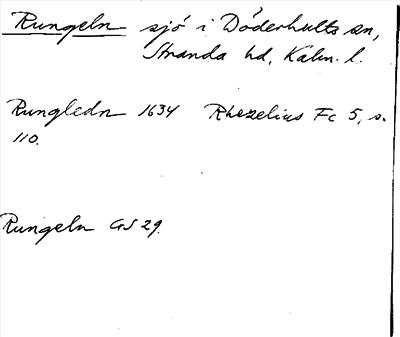 Rungeln sjö i Döderhults sn,
Stranda hd, Kalm. l.
Rungledn 1634 Rhezelius Fc 5, s.
110.
Rungeln GS 29.